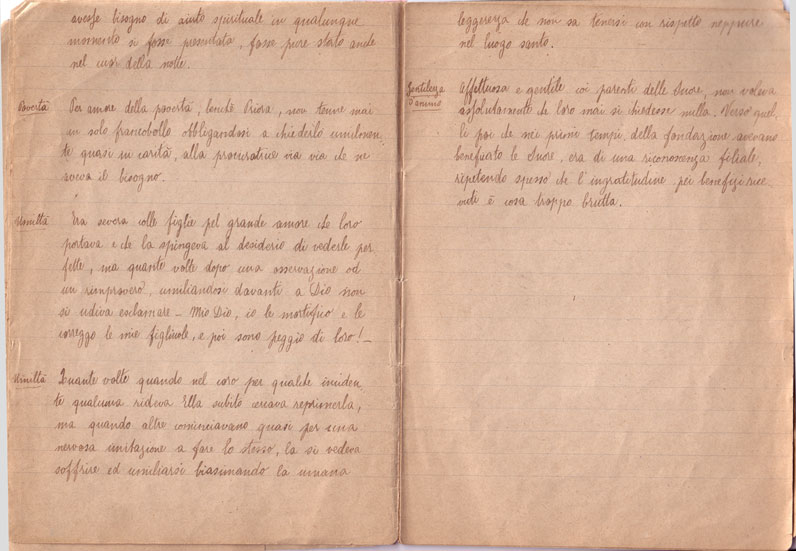 avesse bisogno di aiuto spirituale in qualunque
momento si fosse presentata, fosse pure stato anche
nel cuor della notte.
Povertà Per amore della povertà, benchè Priora, non tenne mai
un solo francobollo obbligandosi a chiederlo umilmen
te quasi in carità, alla procuratrice via via che ne
aveva il bisogno.
Umiltà Era severa colle figlie pel grande amore che loro
portava e che la spingeva al desiderio di vederle per
fette, ma quante volte dopo una osservazione od
un rimprovero, umiliandosi davanti a Dio non
si udiva esclamare - Mio Dio, io le mortifico e le
correggo le mie figliuole, e poi sono peggio di loro! -
Umiltà Quante volte quando nel coro per qualche inciden
te qualcuna rideva Ella subito cercava reprimerla,
ma quando altre cominciavano quasi per una
nervosa imitazione a fare lo stesso, la si vedeva
soffrire ed umiliarsi biasimando la umana
leggerezza che non sa tenersi con rispetto neppure
nel luogo santo.
Gentilezza Affettuosa e gentile coi parenti delle Suore, non voleva
d'animo assolutamente che loro mai si chiedesse nulla. Verso quel
li poi che nei primi tempi, della fondazione avevano
beneficato le Suore, era di una riconoscenza filiale,
ripetendo spesso che l'ingratitudine pei benefizi rice
vuti è cosa troppo brutta.